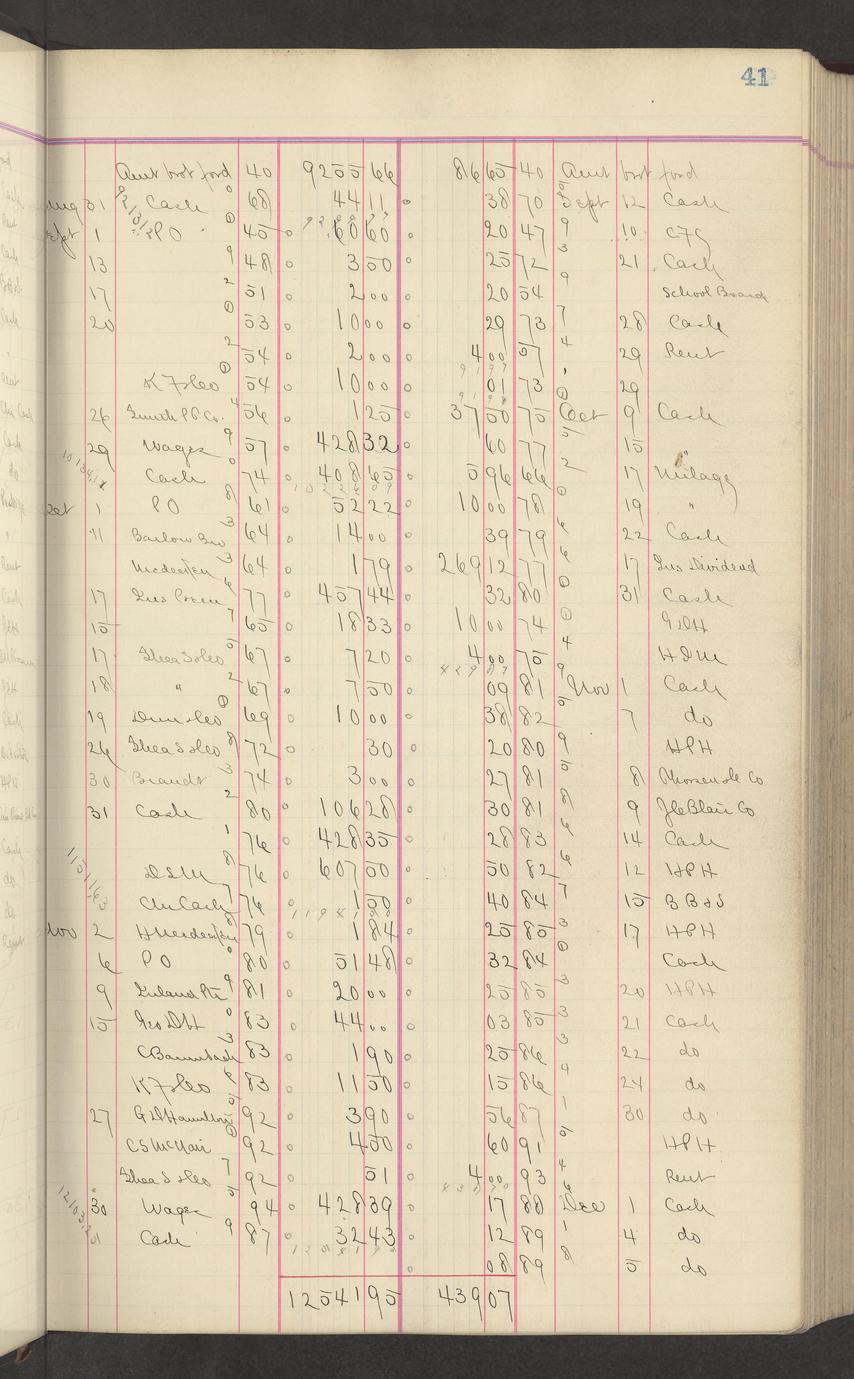 41
Amt brot ford 40 9255 66 86 65 40 Amt brot ford
Aug 31 Cash 68 44 11 38 70 Sept 12 Cash
Sept 1 PO 45 60 60 20 47 10
13 48 3 50 25 72 21 Cash
17 51 2 00 20 54 School Board
20 53 10 00 29 73 28 Cash
54 2 00 4 00 57 29 Rent
K 54 10 00 01 73 29
26 Co. 56 1 25 37 50 75 Oct 9 Cash
29 Wages 57 428 32 60 77 15 "
Cash 74 408 65 5 96 66 17 Milage
Oct 1 PO 61 52 22 10 00 78 19 "
11 Barlow Bro 64 14 00 39 79 22 Cash
64 1 79 269 12 77 17 Ins Dividend
17 Ins 77 457 44 32 80 31 Cash
15 65 18 33 10 00 74 GDH
17 67 7 20 4 00 75 HDM
18 " 67 7 50 09 81 Nov 1 Cash
19 69 10 00 38 82 7 do
26 72 30 20 80 HPH
30 Brandt 74 3 00 27 81 8 Co
31 Cash 80 106 28 30 81 9 Blair Co
76 428 35 28 83 14 Cash
DSM 76 607 50 50 82 12 HPH
Cash 76 1 50 40 84 15 BB&S
Nov 2 79 1 84 25 85 17 HPH
6 PO 80 51 48 32 84 Cash
9 Inland Ptg 81 20 00 25 85 20 HPH
15 Geo DH 83 44 00 03 85 21 Cash
83 1 90 25 86 22 do
K 83 11 50 15 86 24 do
27 GDHamilton 92 3 90 56 87 30 do
CS McNair 92 4 50 60 91 HPH
92 51 4 00 93 Rent
30 Wages 94 428 39 17 88 Dec 1 Cash
Cash 87 32 43 12 89 4 do
08 89 5 do
12541 95 439 07